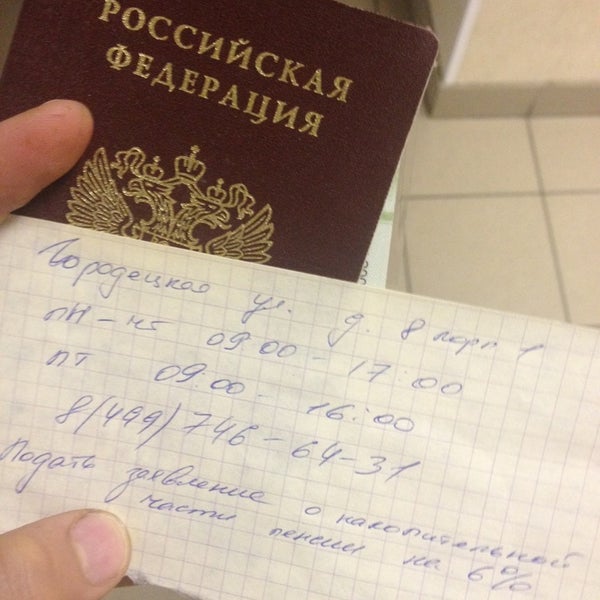 РОССИЙСКАЯ
ФЕДЕРАЦИЯ
Городецкая ул. д. 8 корп 1
пн-чт 09.00 - 17:00
пт 09.00 - 16:00
8(499)746-64-31
Подать заявление о накопительной
части пенсии на 6%